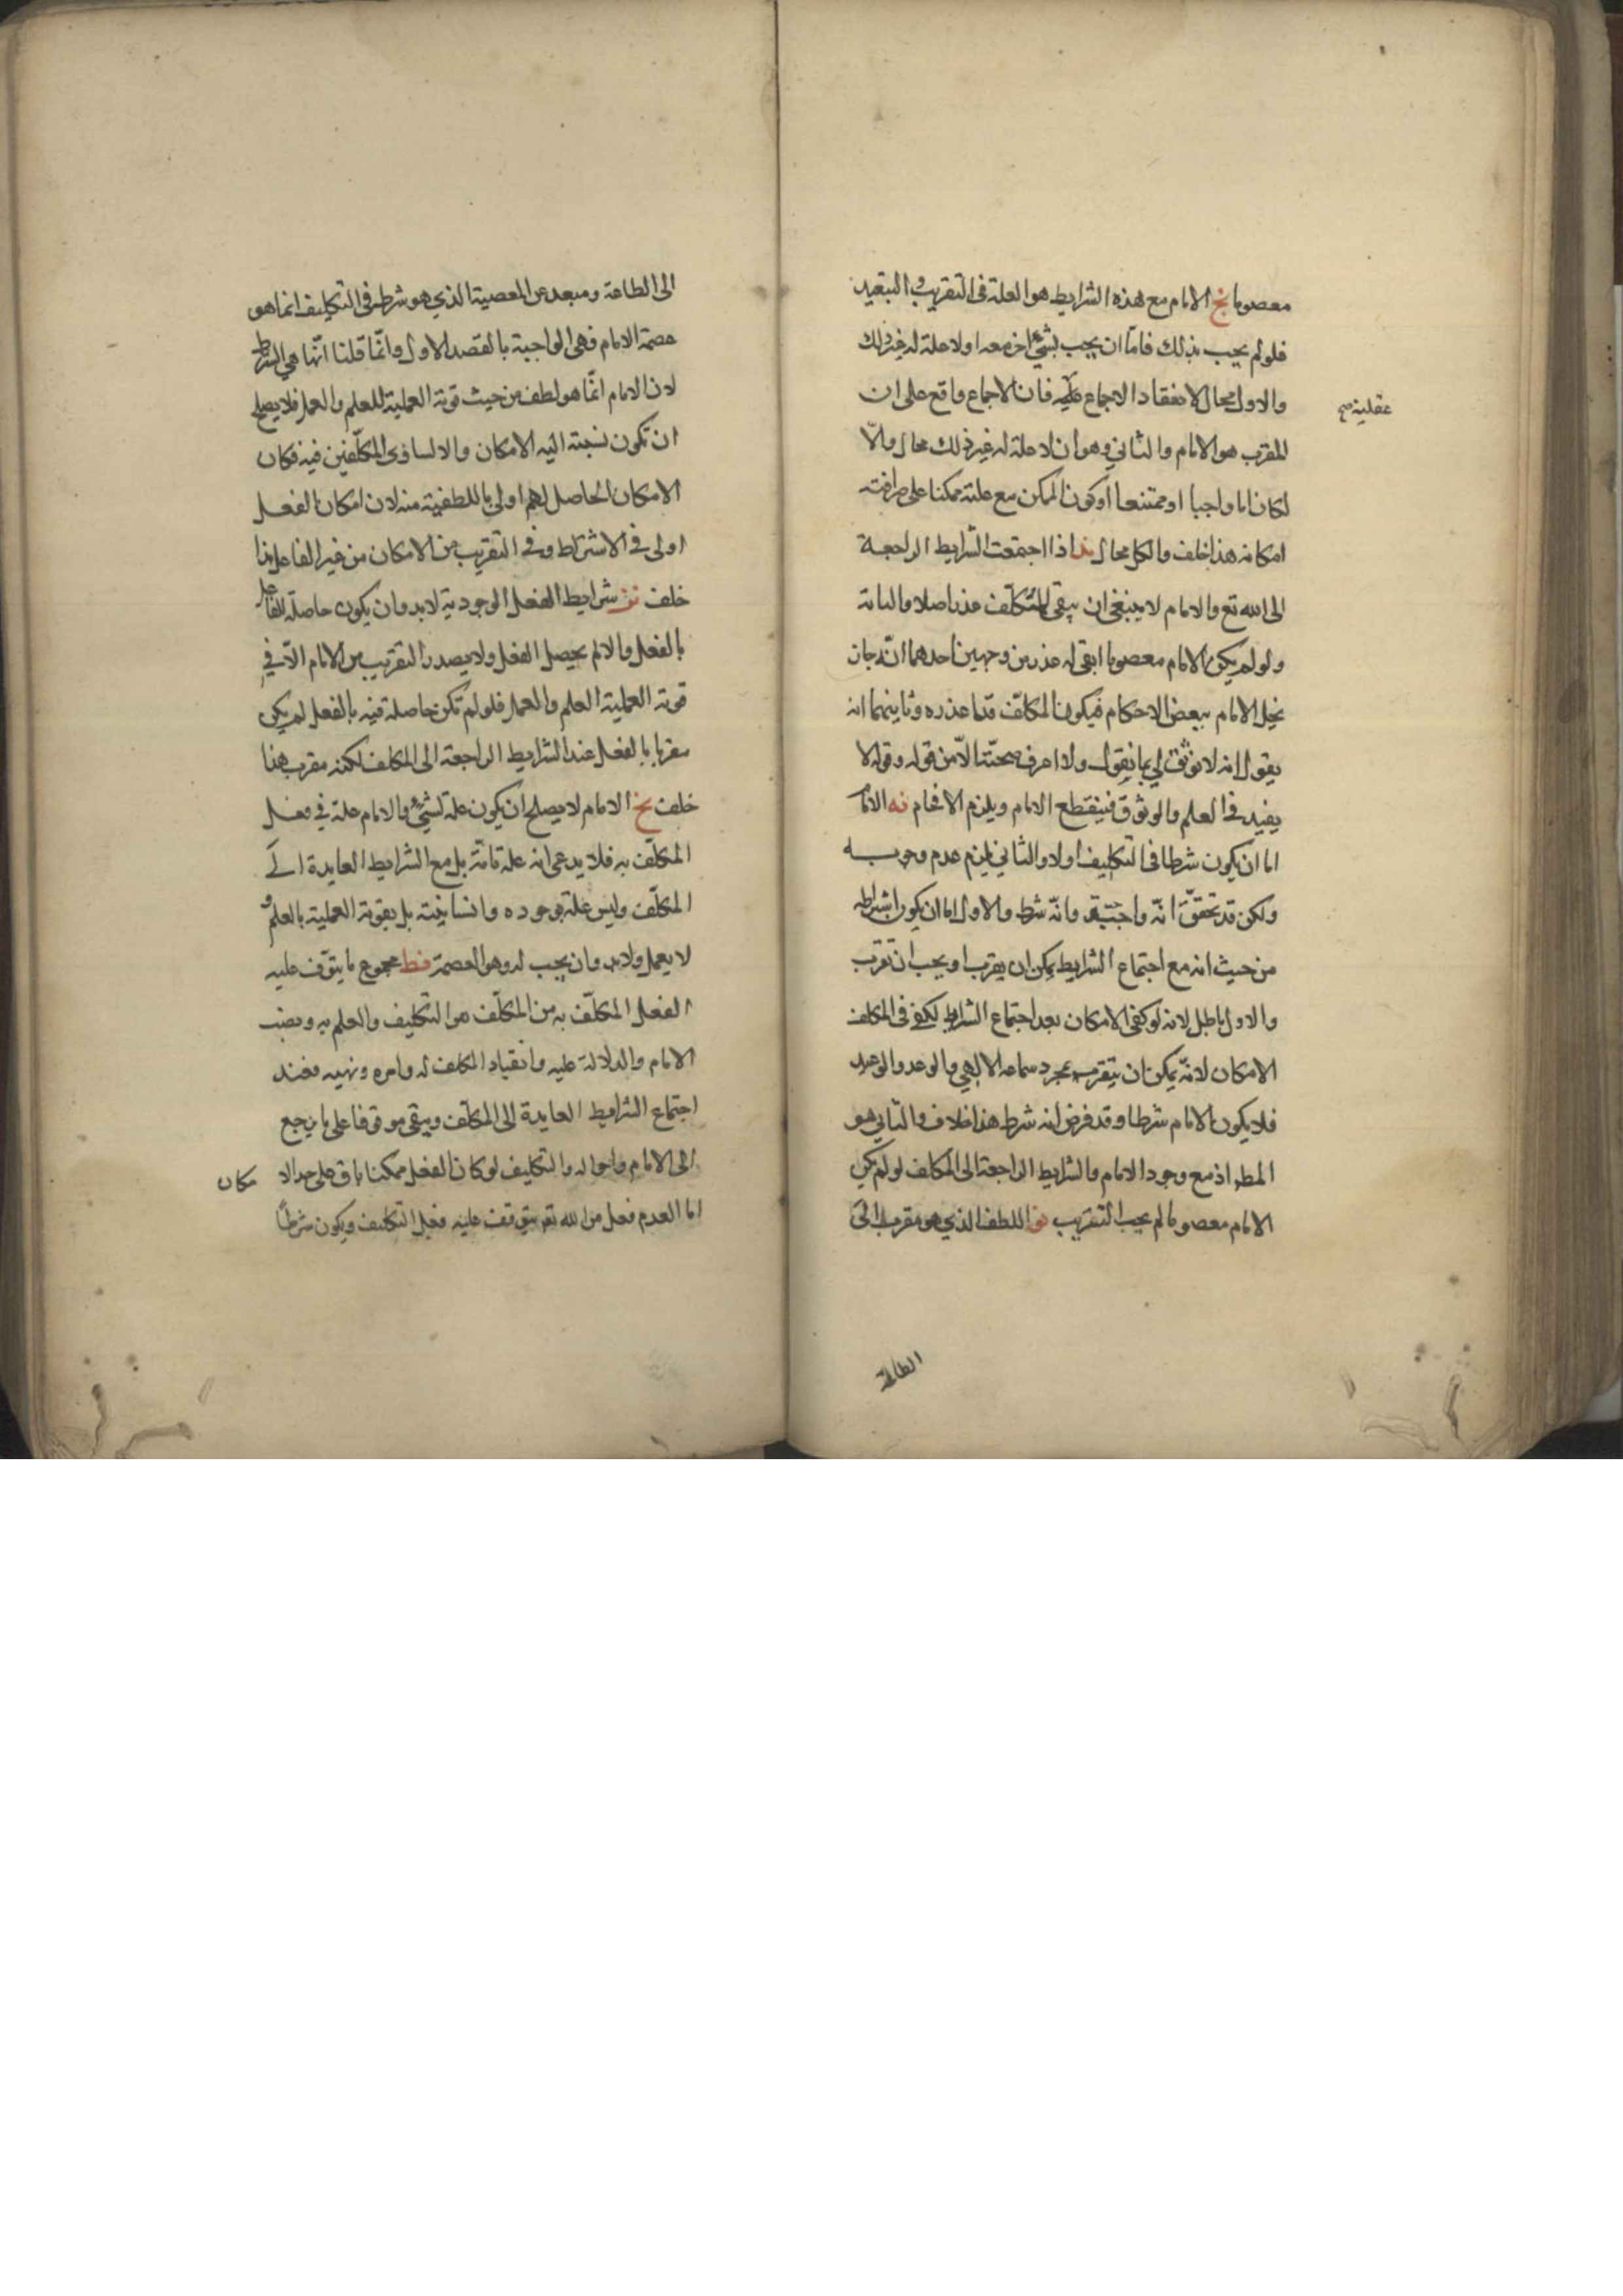 معصوما نج الامام مع هذه الشرايط هو العلة فى التقريب و التبعيد
فلو لم يجب بذلك فامّا ان يجب بشئ اخر معه او لا علة له غير ذلك
والاول محال لانعقاد الاجماع عليه فان الاجماع واقع على ان
عقلية صح
المقرب هو الامام والثاني وهو ان لا علة له غير ذلك محال والّا
لكان اما واجبا او ممتنعا او كون الممكن مع علته ممكنا على صرافته
امكانه هذا خلف والكل محال ند اذا اجتمعت الشرايط الراجعة
الى الله تع والامام لا ينبغى ان يبقى للمكلّف عذر اصلا والبتة
ولو لم يكن الامام معصوما ابقى له عذر من وجهين احدهما انّه جاز
بخل الامام ببعض الاحكام فيكون المكلّف قدّما عذره وثاينهما انه
يقول انه لا نوثق لي بما يقول ولا اعرف صحّته الّا من قوله وقوله لا
يفيد فى العلم والوثوق فينقطع الامام ويلزم الافحام نه الامام
اما ان يكون شرطا فى التكليف اولا والثاني يلزم عدم وجوبه
ولكن قد تحقّق انّه واجب وانّه شرط والاول اما ان يكون اشراطه
من حيث انه مع اجتماع الشرايط يمكن ان يقرب او يجب ان تقرب
والاول باطل لانه لو كفى الامكان بعد اجتماع الشرايط لكفى فى المكلف
الامكان لانّه يمكن ان يتقرب بمجرد سماعه الالهي والوعد والوعيد
فلا يكون الامام شرطا وقد فرض انه شرط هذا خلاف والثاني هو
المط اذ مع وجود الامام والشرايط الراجعة الى المكلف لو لم يكن
الامام معصوما لم يجب التقريب نو اللطف الذي هو مقرب الى
الطاعة
الى الطاعة ومبعد عن المعصية الذي هو شرط فى التكليف انما هو
عصمة الامام فهى الواجبة بالقصد الاول وانّما قلنا انّها هي الشرط
لان الامام انّما هو لطف من حيث قوته العملية للعلم والعمل فلا يصلح
ان تكون نسبته اليه الامكان والا لساوى المكلّفين فيه فكان
الامكان الحاصل لهم اولى باللطفية منه لان امكان الفعل
اولى فى الاشتراط وفى التقريب من الامكان من غير الفاعل هذا
خلف نز شرايط الفعل الوجودية لابد وان يكون حاصلة للفاعل
بالفعل والا لم يحصل الفعل ولا يصدر التقريب من الامام الّا في
قوته العملية العلم والعمل فلو لم تكن حاصلة فيه بالفعل لم يكن
مقربا بالفعل عند الشرايط الراجعة الى المكلف لكنه مقرب هذا
خلف نح الامام لا يصلح ان يكون علة لشئ والامام علة في فعل
المكلّف به فلا يدعى انه علة تامّة بل مع الشرايط العايدة الى
المكلّف وليس علة بوجوده وانسانيته بل بقوته العملية بالعلم و
لا يعمل ولابد وان يجب له وهو العصمة نط مجموع ما يتوقّف عليه
الفعل المكلّف به من المكلّف هو التكليف والعلم به ونصب
الامام والدلالة عليه وانقياد المكلف له وامره ونهيه فعند
اجتماع الشرايط العايدة الى المكلف ويبقى موقوفا على ما يرجع
الى الامام واحواله والتكليف لو كان الفعل ممكنا باق على حد الا
مكان
اما العدم فعل من الله تع يتوقف عليه فعل التكليف ويكون شرطًا